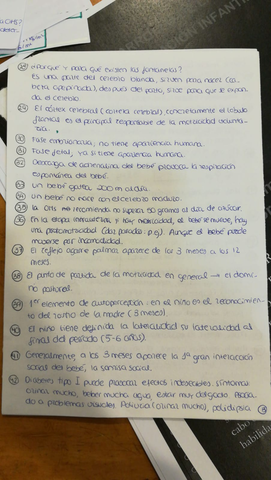 ¿Por qué y para qué existen las fontanelas?
Es una parte del cráneo blanda, sirven para nacer (ca
beza apepinada), después del parto, sirve para que se expan
da el cerebro
El córtex cerebral (corteza cerebral), concretamente el lóbulo
frontal es el principal responsable de la motricidad volunta-
ria.
Fase embrionaria, no tiene apariencia humana.
Fase fetal, ya si tiene apariencia humana.
Descarga de adrenalina del bebé produce la respiración
espontánea del bebé.
un bebé gasta 200 m al día.
un bebé no nace con el cerebro maduro.
35 la OMS recomienda no superar 50 gramos al día de azúcar.
36 En la etapa intrauterina y hay motricidad, el bebé se mueve, hay
una protomotricidad (dar patadas p.g). Aunque el bebé puede
moverse por incomodidad.
37 El reflejo agarre palmar aparece de los 3 meses a los 12
meses
38 El punto de partida de la motricidad en general → el domi-
nio postural.
39 1er elemento de autopercepción: en el niño en el reconocimien-
to del rostro de la madre (3 meses)
40 El niño tiene definida la lateralidad su lateralidad al
final del período (5-6 años).
41 Generalmente, a los 3 meses aparece la 1ª gran interacción
social del bebé, la sonrisa social.
42 Diabetes tipo I puede provocar efectos indeseables. síntomas:
orinar mucho, beber mucha agua, estar muy delgado. Asocia-
do a problemas visuales. Poliuria (orinar mucho), polidipsia
INFANTIL